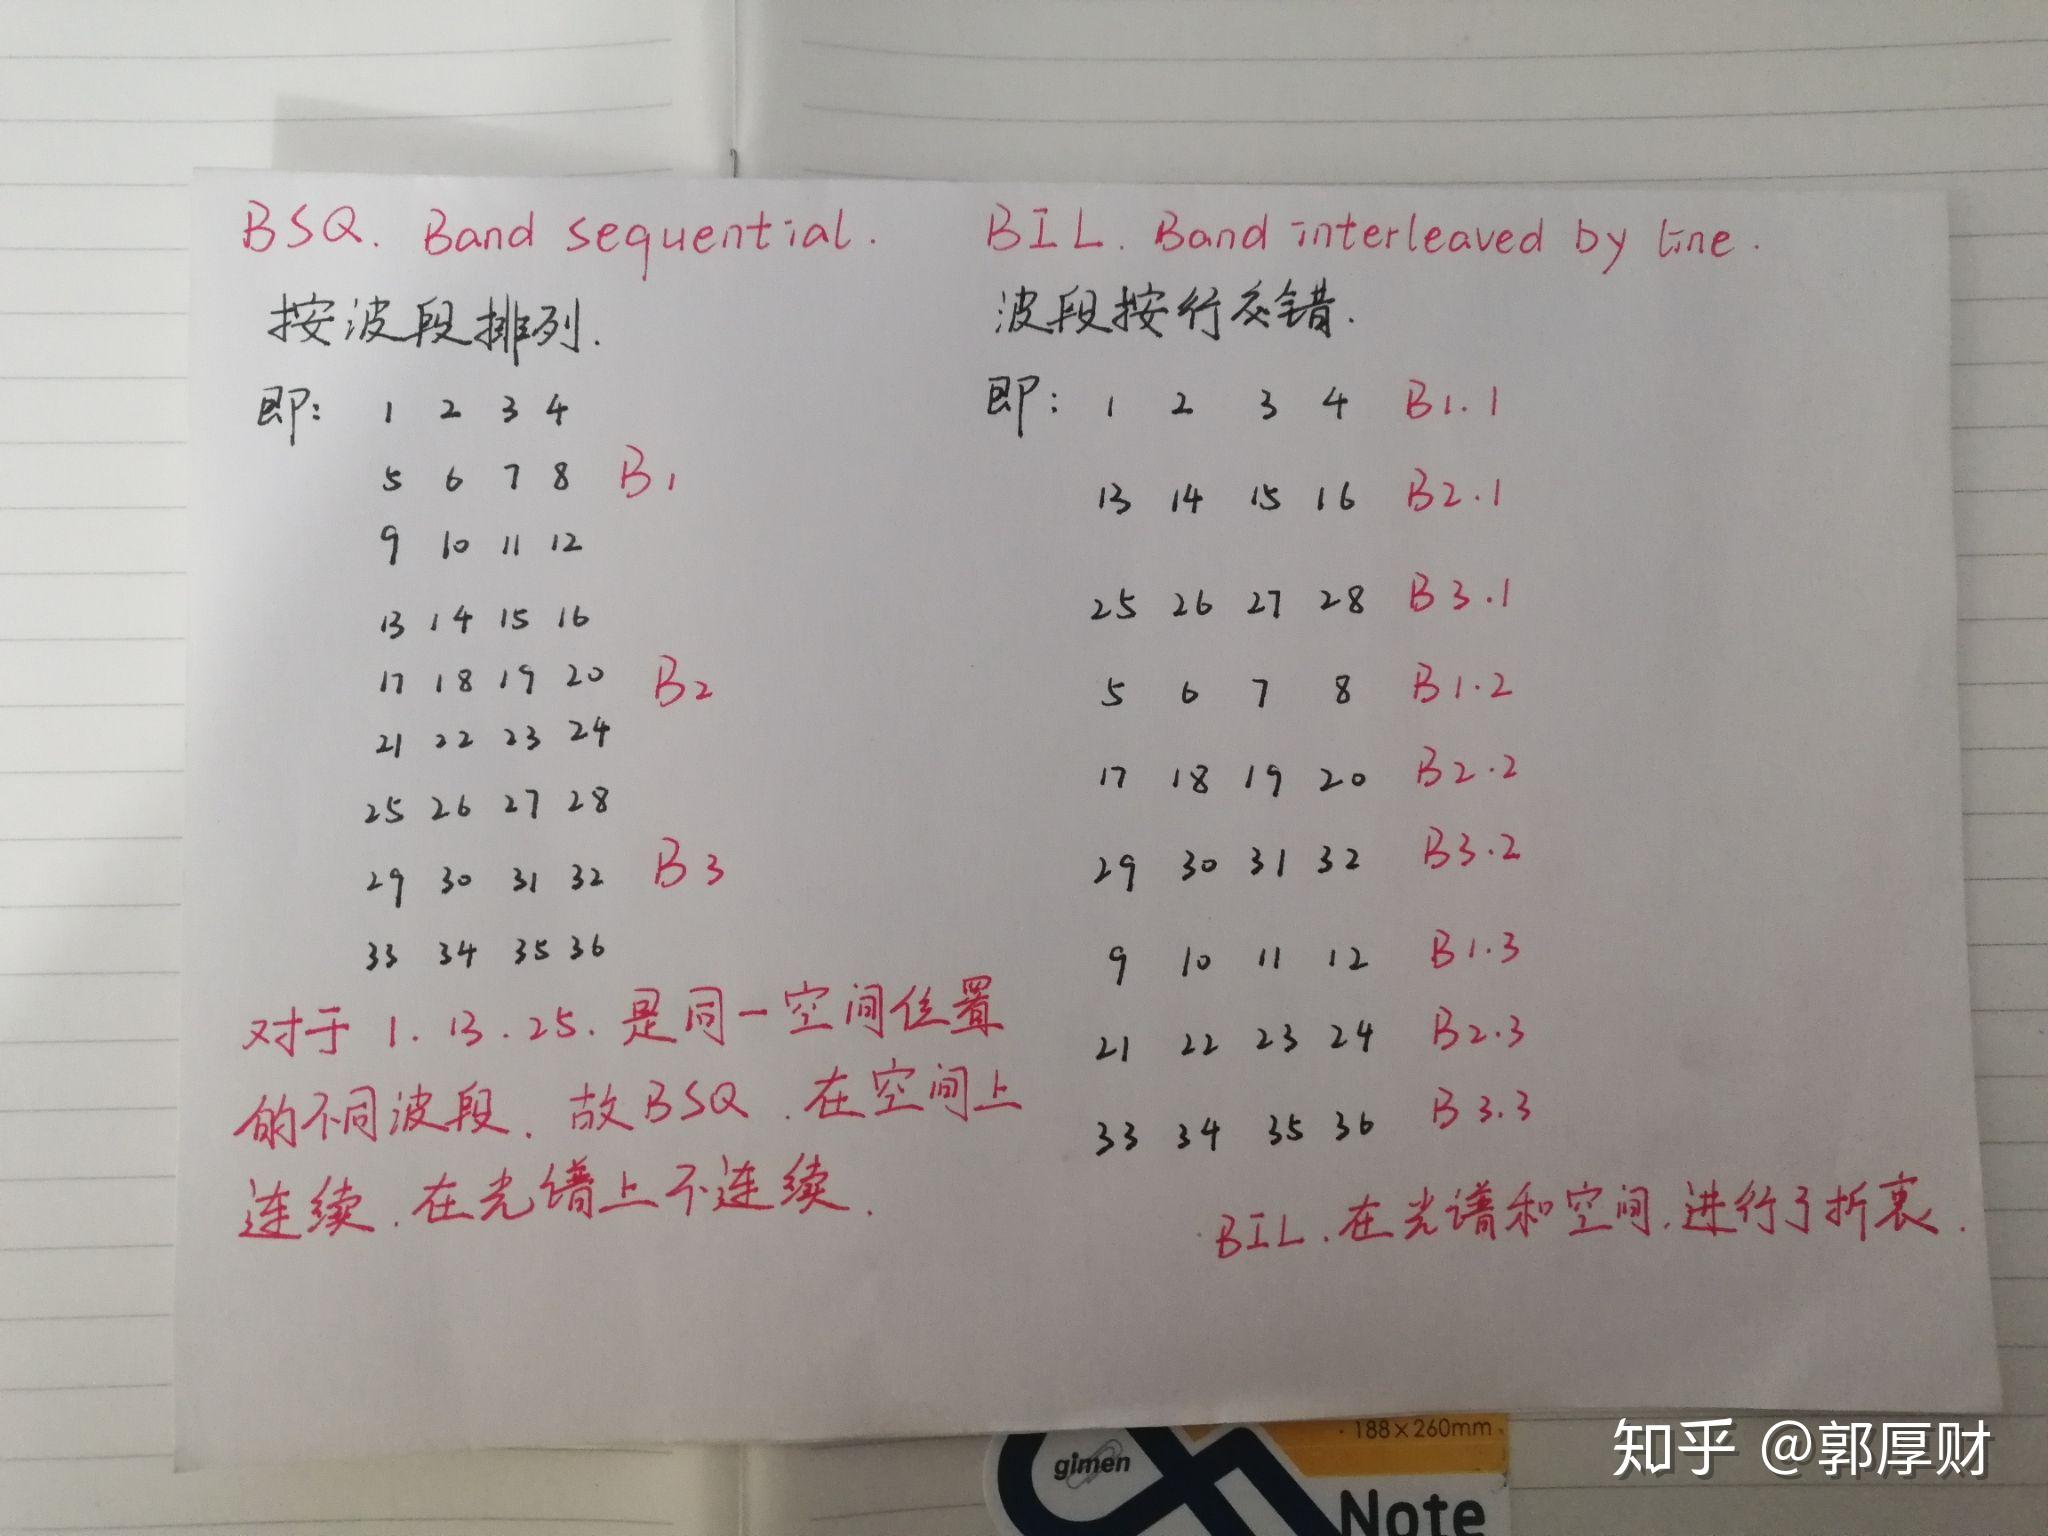 BSQ. Band sequential.
按波段排列.
即: 1 2 3 4
5 6 7 8 B1
9 10 11 12
13 14 15 16
17 18 19 20 B2
21 22 23 24
25 26 27 28
29 30 31 32 B3
33 34 35 36
对于 1. 13. 25. 是同一空间位置
的不同波段. 故BSQ. 在空间上
连续. 在光谱上不连续.
BIL. Band interleaved by line.
波段按行交错.
即: 1 2 3 4 B1.1
13 14 15 16 B2.1
25 26 27 28 B3.1
5 6 7 8 B1.2
17 18 19 20 B2.2
29 30 31 32 B3.2
9 10 11 12 B1.3
21 22 23 24 B2.3
33 34 35 36 B3.3
BIL. 在光谱和空间. 进行了折衷.
188×260mm
gimen
Note
知乎 @郭厚财